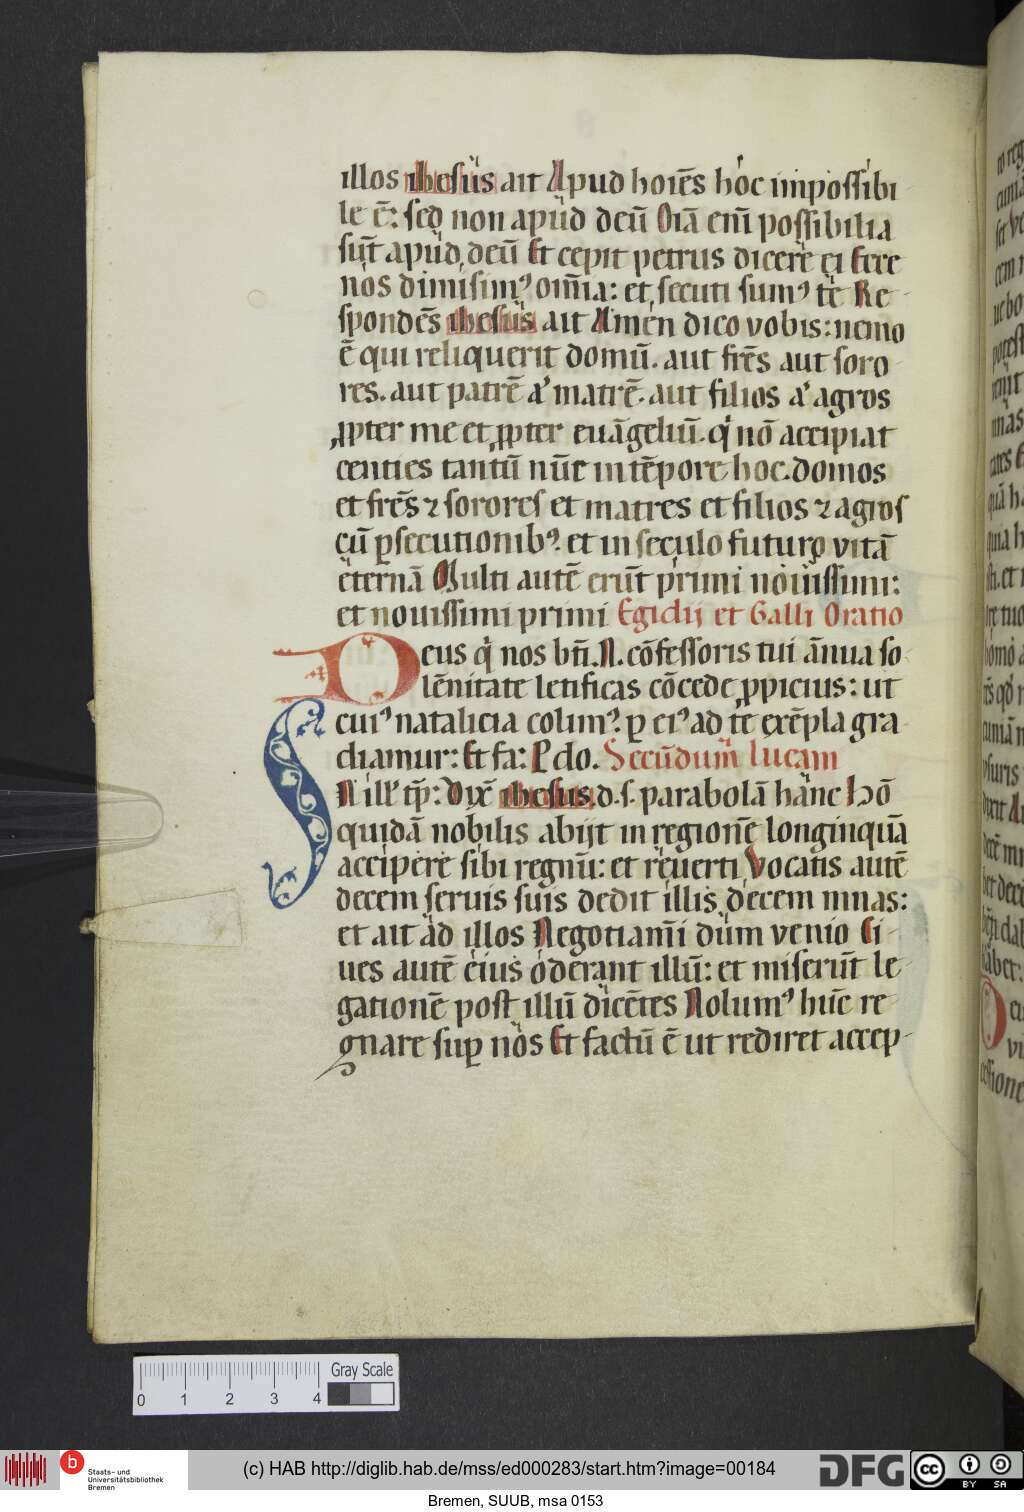 illos ihesus ait Apud hoiēs hoc impossibi
le ē: sed non apud deū Oīa enī possibilia
sūt apud deū Et cepit petrus dicere ei Ecce
nos dimisimꝰ oīm̄ia: et secuti sumꝰ te Re
spondēs ihesus ait Amen dico vobis: nemo
ē qui reliquerit domū. aut frēs aut soro
res. aut patrē aꝰ matrē. aut filios aꝰ agros
ꝓpter me et ꝓpter euāgeliū. qi nō accipiat
centies tantū nūc in tēpore hoc. domos
et frēs ⁊ sorores et matres et filios ⁊ agros
cū ꝑsecutionibꝰ. et in seculo futuro vitā
eternā Multi autē erūt primi nouissimi:
et nouissimi primi Egidij et Galli Oratio
Deus qi nos bt̄i. N. cōfessoris tui ānua so
lēnitate letificas cōcede ꝓpicius: ut
cuiꝰ natalicia colimꝰ. ꝑ eiꝰ ad te exēpla gra
diamur: Et fa: P do. Secūdum lucam
IN illꝰ tp̄: Dix̄ ihesus. d. s. parabolā hānc Hō
quidā nobilis abijt in regionē longinquā
accipere sibi regnū: et reuerti Vocatis autē
decem seruis suis dedit illis decem mnas:
et ait ad illos Negotiam̄i dum venio Ci
ues autē eius oderant illū: et miserūt le
gationē post illū dicētes Nolumꝰ hūc re
gnare suꝑ nos Et factū ē ut rediret accep
0 1 2 3 4 Gray Scale
b Staats- und
Universitätsbibliothek
Bremen
(c) HAB http://diglib.hab.de/mss/ed000283/start.htm?image=00184
DFG
cc BY SA
Bremen, SUUB, msa 0153